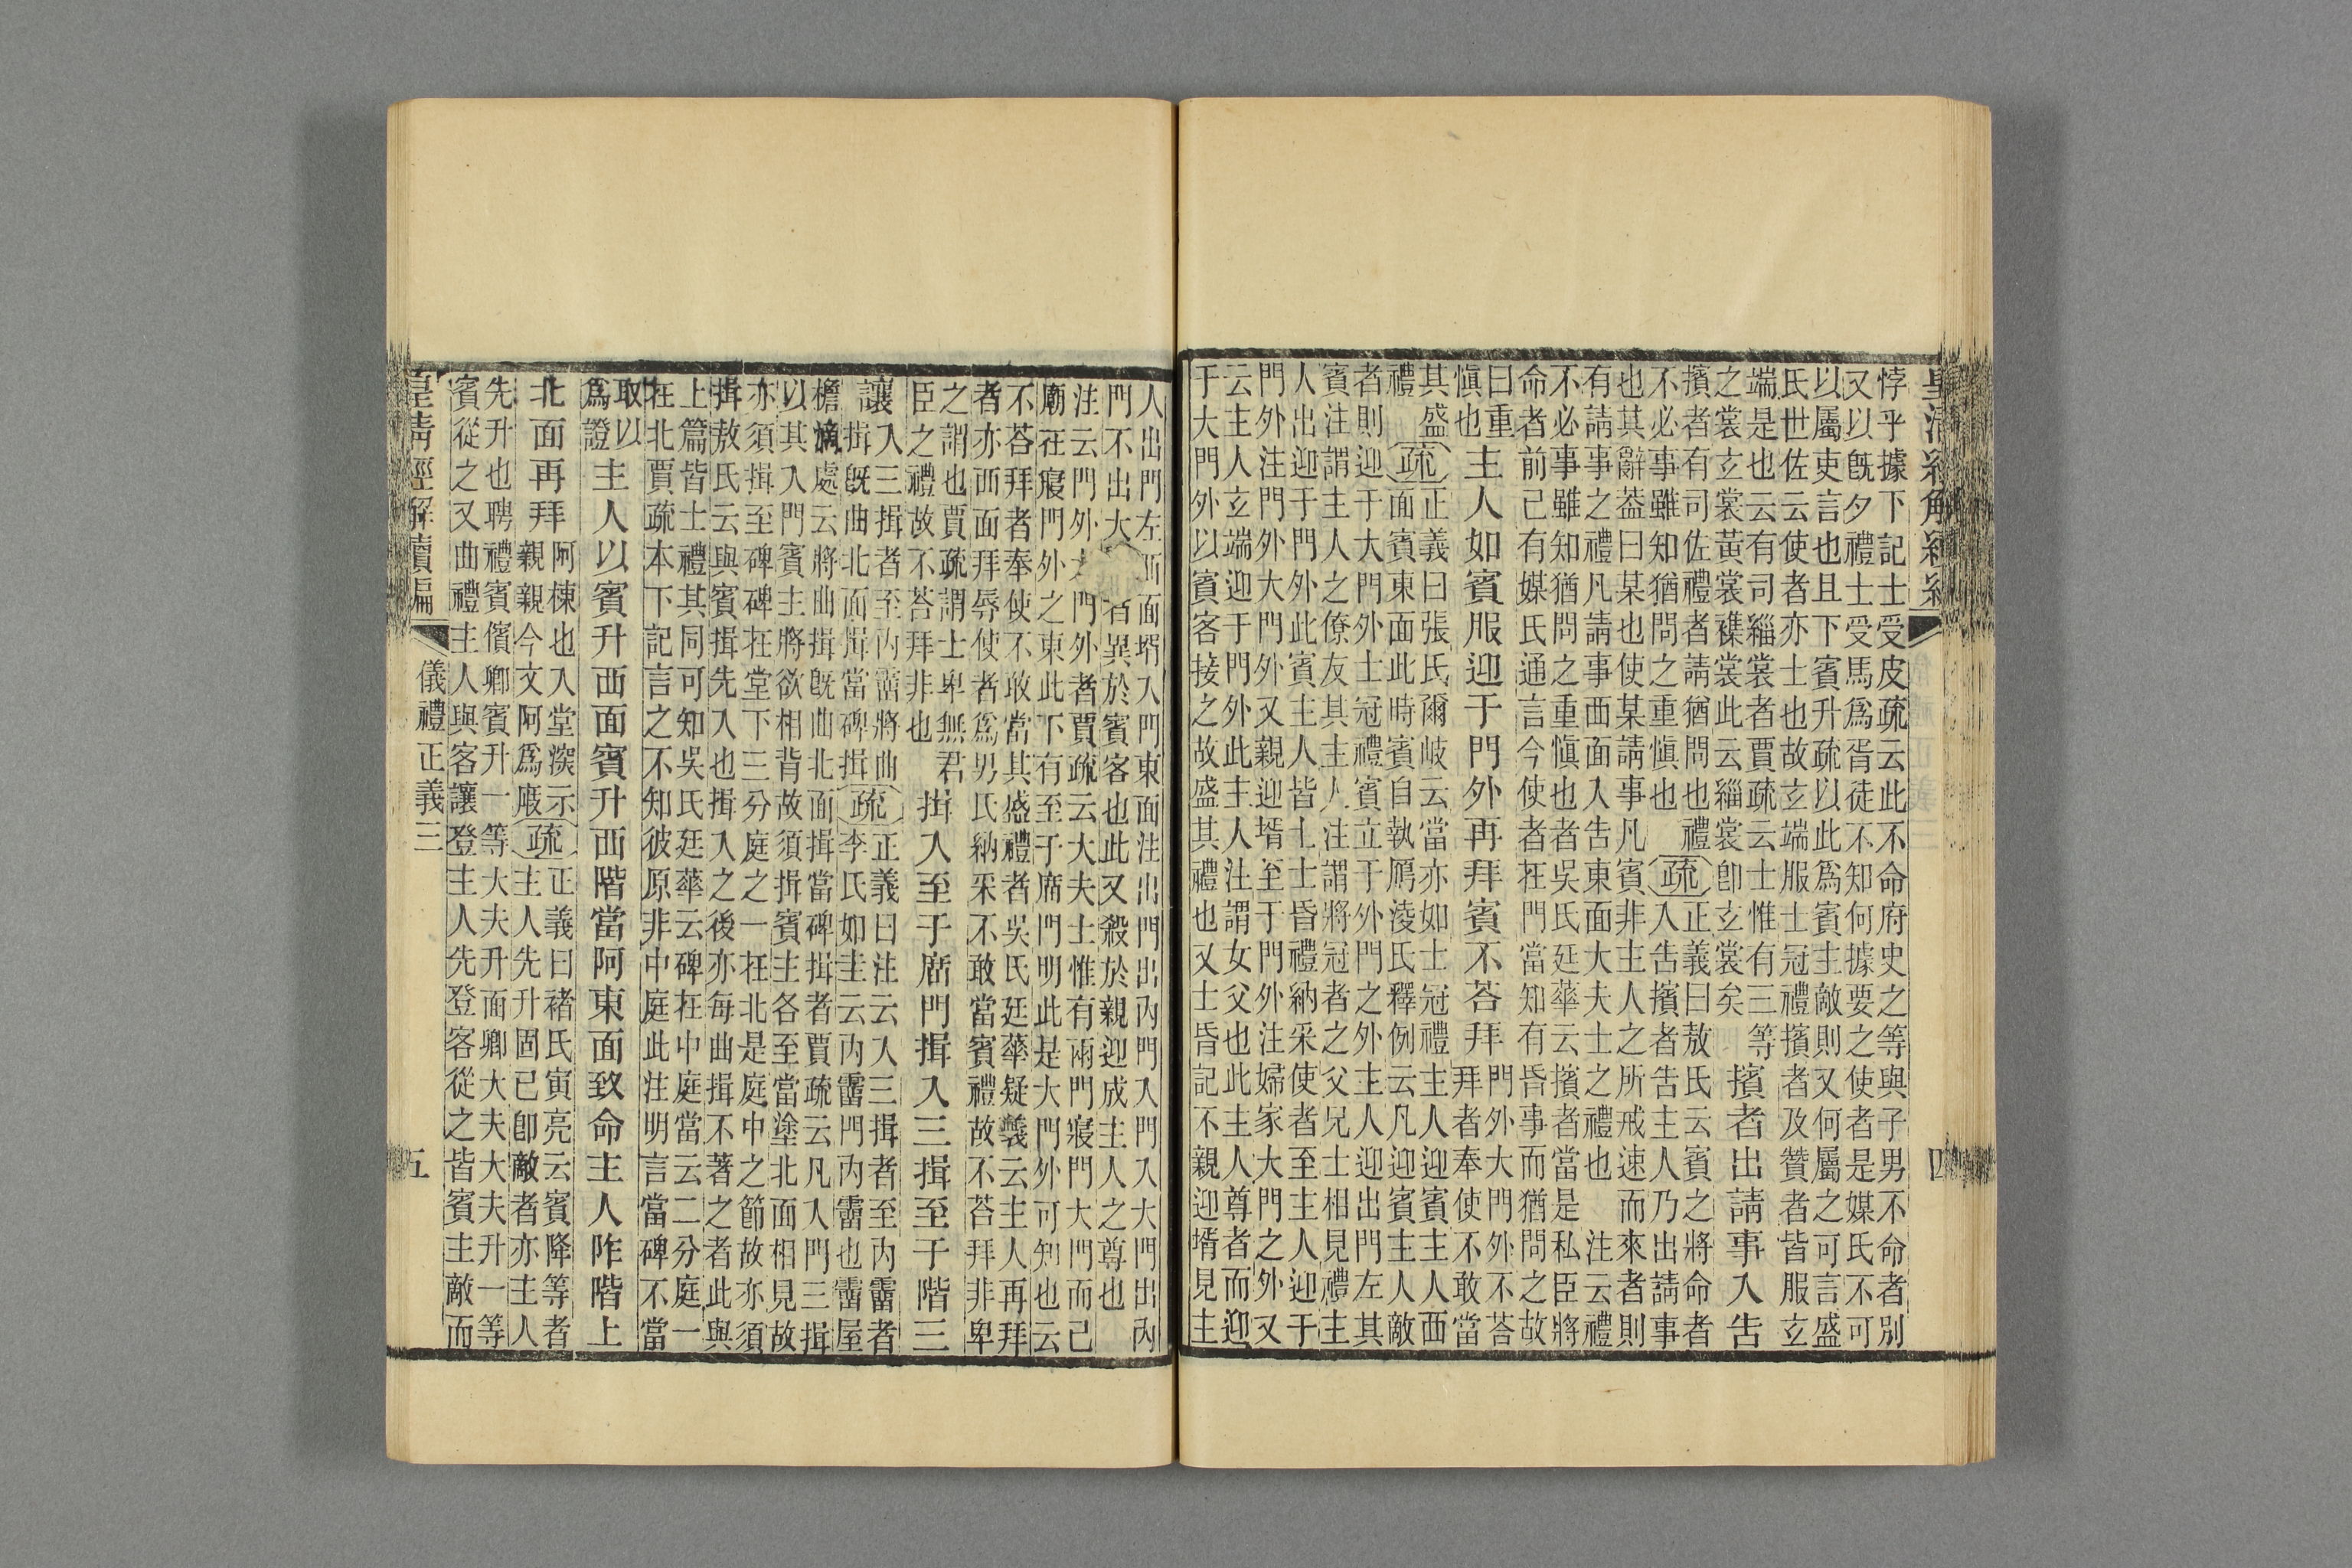 皇清經解續編
四
悖乎據下記士受皮疏云此不命府史之等與子男不命者別
又以既夕禮士受馬爲胥徒不知何據要之使者是媒氏不可
以屬吏言也且下賓升疏以此爲賓主敵則又何屬之可言盛
氏世佐云使者亦士也故玄端服士冠禮擯者及贊者皆服玄
端是也云有司緇裳者賈疏云士惟有三等
之裳玄裳黃裳襍裳此云緇裳卽玄裳矣
擯者出請事入告
擯者有司佐禮者請猶問也禮
不必事雖知猶問之重愼也
疏
正義曰敖氏云賓之將命者
入告擯者告主人乃出請事
也其辭葢曰某也使某請事凡賓非主人之所戒速而來者則
有請事之禮凡請事西面入告東面大夫士之禮也 注云禮
不必事雖知猶問之重愼也者吳氏廷華云擯者當是私臣將
命者前己有媒氏通言今使者在門當知有昏事而猶問之故
曰重
愼也
主人如賓服迎于門外再拜賓不荅拜
門外大門外不荅
拜者奉使不敢當
其盛
禮
疏
正義曰張氏爾岐云當亦如士冠禮主人迎賓主人西
面賓東面此時賓自執鴈淩氏釋例云凡迎賓主人敵
者則迎于大門外士冠禮賓立于外門之外主人迎出門左其
賓注謂主人之僚友其主人注謂將冠者之父兄士相見禮主
人出迎于門外此賓主人皆士士昏禮納采使者至主人迎于
門外注門外大門外又親迎壻至于門外注婦家大門之外又
云主人玄端迎于門外此主人注謂女父也此主人尊者而迎
于大門外以賓客接之故盛其禮也又士昏記不親迎壻見主
人出門左西面壻入門東面注出門出內門入門入大門出內
門不出大
者異於賓客也此又殺於親迎成主人之尊也
注云門外大門外者賈疏云大夫士惟有兩門寢門大門而已
廟在寢門外之東此下有至于廟門明此是大門外可知也云
不荅拜者奉使不敢當其盛禮者吳氏廷華疑義云主人再拜
者亦西面拜辱使者爲男氏納采不敢當賓禮故不荅拜非卑
之謂也賈疏謂士卑無君
臣之禮故不荅拜非也
揖入至于廟門揖入三揖至于階三
讓
入三揖者至內霤將曲
揖既曲北面揖當碑揖
疏
正義曰注云入三揖者至內霤者
李氏如圭云內霤門內霤也霤屋
檐滴處云將曲揖既曲北面揖當碑揖者賈疏云凡入門三揖
以其入門賓主將欲相背故須揖賓主各至當塗北面相見故
亦須揖至碑碑在堂下三分庭之一在北是庭中之節故亦須
揖敖氏云與賓揖先入也揖入之後亦每曲揖不著之者此與
上篇皆士禮其同可知吳氏廷華云碑在中庭當云二分庭一
在北賈疏本下記言之不知彼原非中庭此注明言當碑不當
取以
爲證
主人以賓升西面賓升西階當阿東面致命主人阼階上
北面再拜
阿棟也入堂深示
親親今文阿爲庪
疏
正義曰褚氏寅亮云賓降等者
主人先升固已卽敵者亦主人
先升也聘禮賓儐卿賓升一等大夫升面卿大夫大夫升一等
賓從之又曲禮主人與客讓登主人先登客從之皆賓主敵而
皇清經解續編
儀禮正義三
五